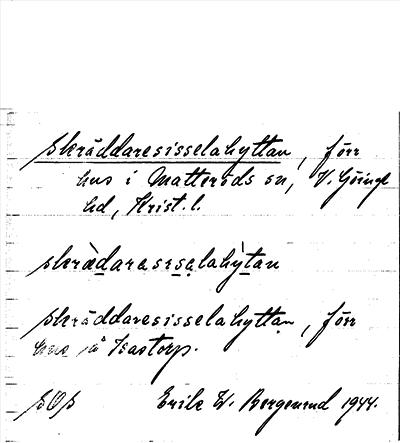 skräddaresisselahyttan, förr
hus i Matteröds sn, V. Göinge
hd, Krist. l.
skrädarasısa̤lahy̍tan
skräddaresisselahyttan, förr
hus på Kastorp.
SOS Erik W. Bergenrud 1944.